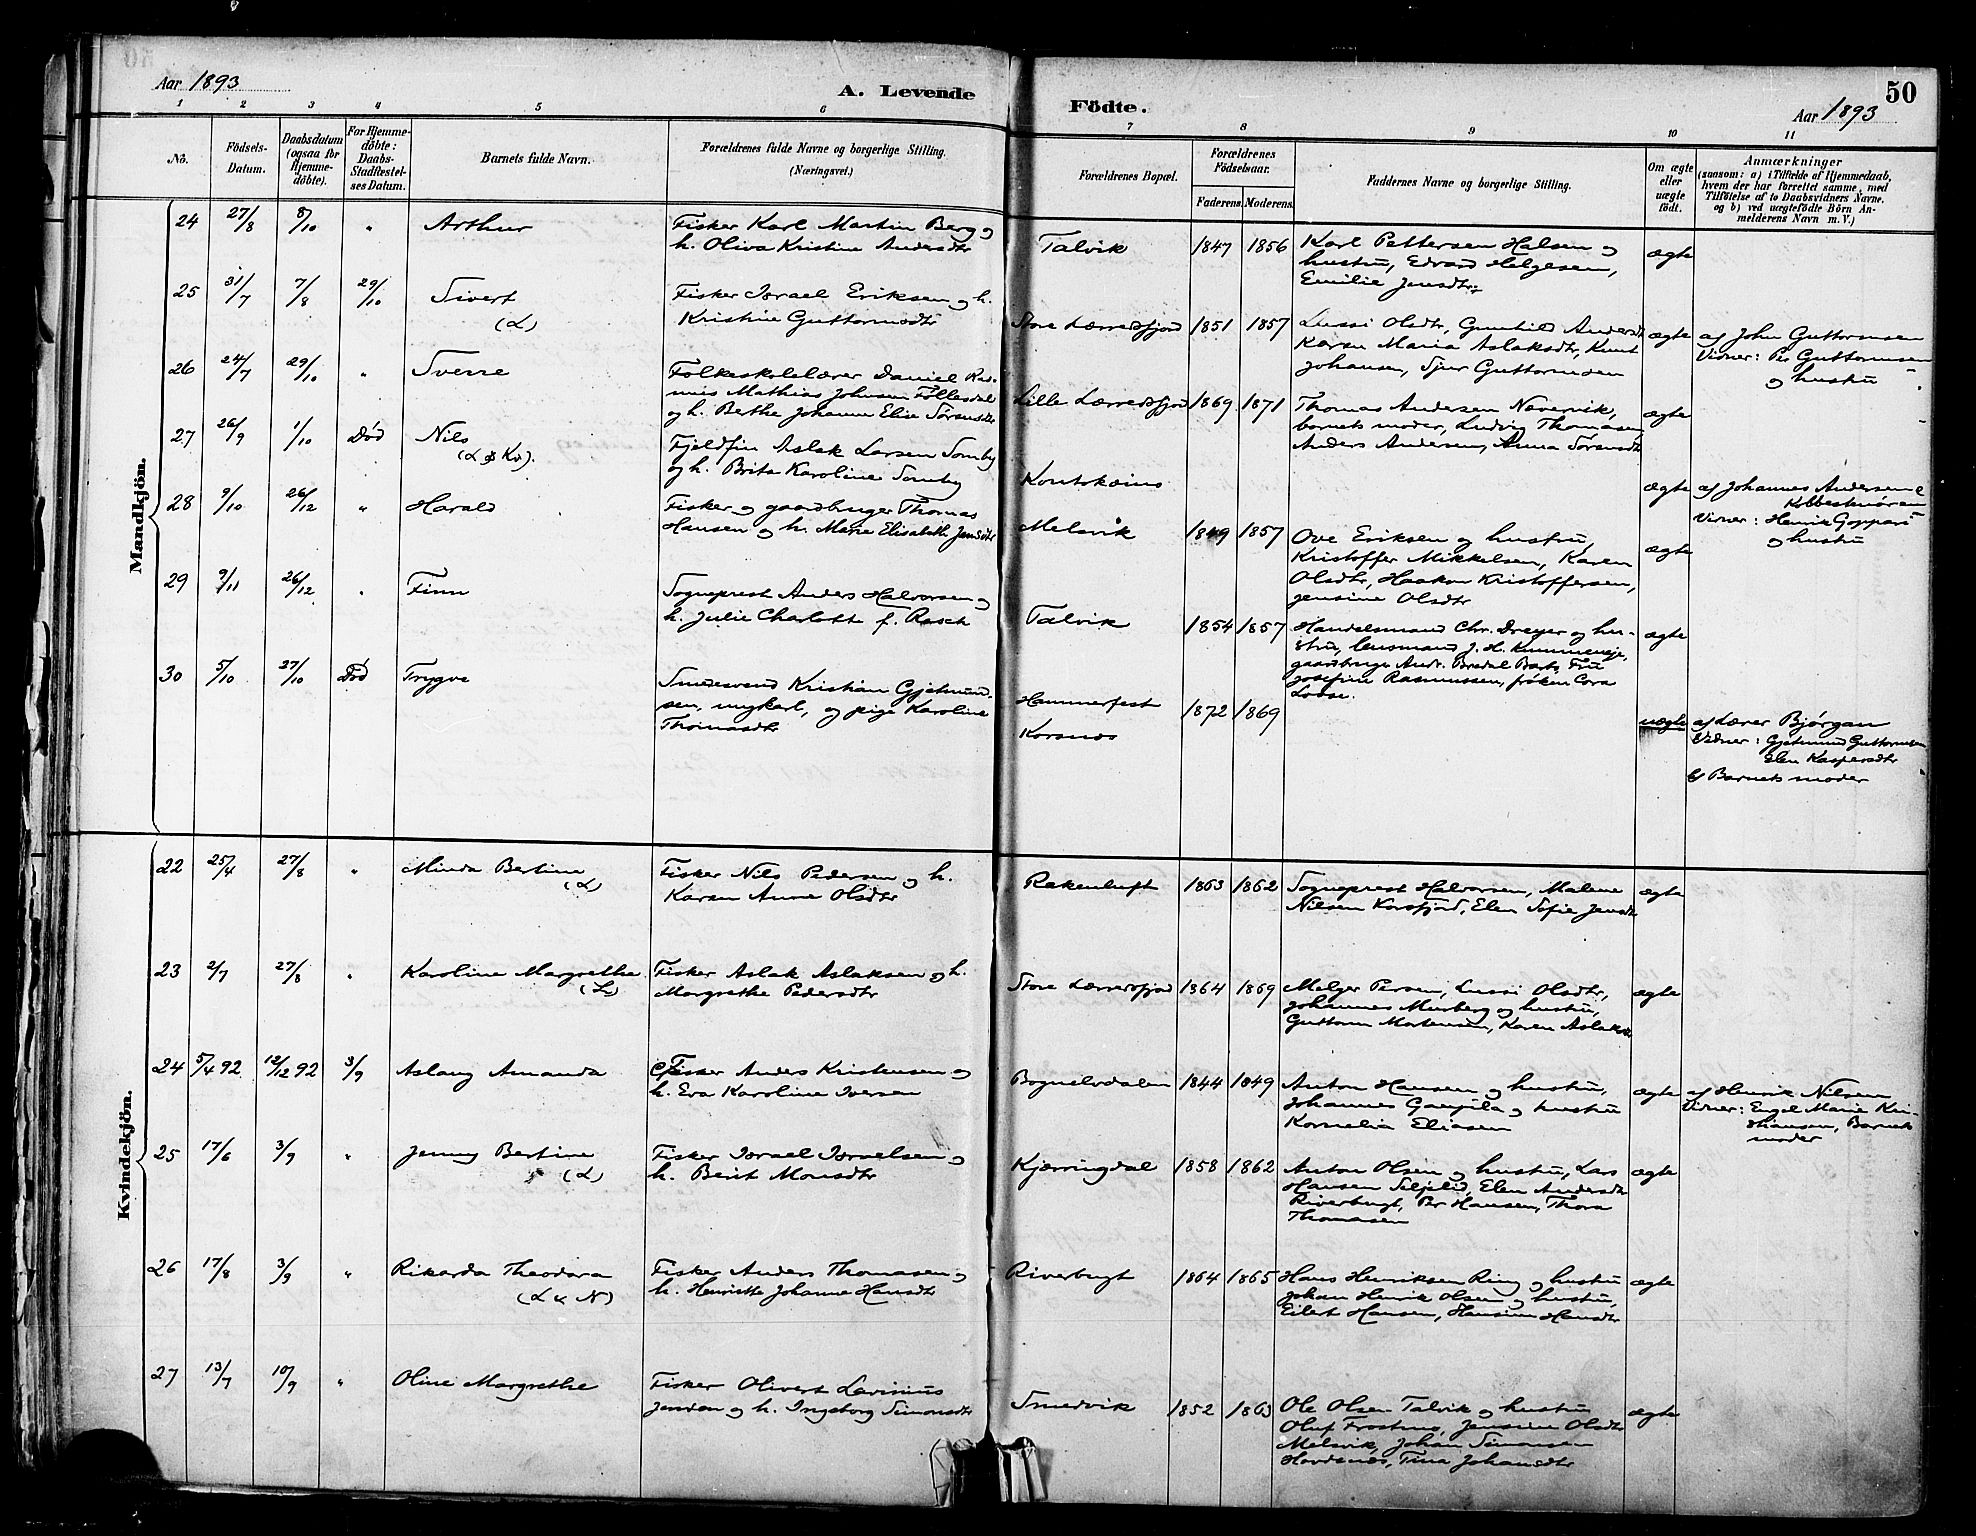 Aar 1893
A. Levende
Födte.
Aar 1893
50
1 2 3 4 5 6 7 8 9 10 11
No.
Födsels-
Datum.
Daabsdatum
(ogsaa for
Hjemme-
döbte).
For Hjemme-
döbte:
Daabs-
Stadfæstel-
ses Datum.
Barnets fulde Navn.
Forældrenes fulde Navne og borgerlige Stilling.
(Næringsvei.)
Forældrenes Bopæl.
Forældrenes
Födselsaar.
Faderens. Moderens.
Faddernes Navne og borgerlige Stilling.
Om ægte
eller
uægte
födt.
Anmærkninger
(saasom: a) i Tilfælde af Hjemmedaab,
hvem der har forrettet samme, med
Tilföielse af to Daabsvidners Navne,
og b) ved uægtefödte Börn An-
melderens Navn m. V.)
Mandkjön.
24 27/8 8/10 " Arthur
Fisker Karl Martin Berg og
h. Oliva Kristine Andersdtr
Talvik 1847 1856
Karl Pettersen Halsen og
hustru, Edvard Helgesen,
Emilie Jensdtr
ægte
25 31/7 7/8 29/10 Sivert
(L)
Fisker Israel Eriksen og h.
Kristine Guttormsdtr
Store Lerredsfjord 1851 1857
Lussi Olsdtr, Gunhild Andersdtr
Karen Maria Aslaksdtr, Knut
Johansen, Sjur Guttormsen
ægte
af John Guttormsen
Vidner: Per Guttormsen
og hustru
26 24/7 29/10 " Sverre
Folkeskolelærer Daniel Ras-
mus Mathias Johnsen Follesdal
og h. Berthe Johanne Elise Sørensdtr
Lille Lerredsfjord 1869 1871
Thomas Andersen Nævervik,
barnets moder, Ludvig Thomasen
Anders Andersen, Anna Sørensdtr
ægte
27 26/9 1/10 Död Nils
(L & Kv).
Fjeldfin Aslak Larsen Somby
og h. Brita Karoline Somby
Koutokeino
ægte
af Johannes Andersen
Vidner: Henrik
og hustru
28 9/10 26/12 " Harald
Fisker og gaardbruger Thomas
Hansen og h. Marie Elisabeth Jensdtr
Melsvik 1849 1857
Ove Eriksen og hustru,
Kristoffer Mikkelsen, Karen
Olsdtr, Haakon Kristoffersen,
Jensine Olsdtr
ægte
29 9/11 26/12 " Finn
Sogneprest Anders Halvorsen og
h. Julie Charlotte f. Rasch
Talvik 1854 1857
Handelsmand Chr. Dreyer og hu-
stru, lensmand J. H. Kummeneje,
gaardbruger Andr. Bredal Fru
Josefine Rasmussen, frøken Cora
ægte
30 5/10 27/10 Död Trygve
Smedesvend Kristian Gjetmund-
sen, ungkarl, og pige Karoline
Thomasdtr
Hammerfest
Korsnes
1872 1869
uægte
af Lærer Bjørgan
Vidner: Gjetmund Guttormsen
Elen Kaspersdtr
b) Barnets moder
Kvindekjön.
22 25/4 27/8 " Minda Bertine
(L)
Fisker Nils Pedersen og h.
Karen Anne Olsdtr
Rakenluft 1863 1862
Sogneprest Halvorsen, Malene
Nilsen Korsfjord, Elen Sofie Jensdtr
ægte
23 2/7 27/8 " Karoline Margrethe
(L)
Fisker Aslak Aslaksen og h.
Margrethe Pedersdtr
Store Lerredsfjord 1864 1869
Melger Persen, Lussi Olsdtr,
Johannes Murberg og hustru,
Guttorm Mortensen, Karen Aslaksdtr
ægte
24 5/4 92 12/12 92 3/9 Aslaug Amanda
Fisker Anders Kristensen og
h. Eva Karoline Iversen
Bognelvdalen 1844 1849
Anton Hansen og hustru,
Johannes og hustru
Kornelia Eliasen
ægte
af Henrik Nilsen
Vidner: Engel Marie Kri-
stiansen, Barnets
moder
25 17/6 3/9 " Jenny Bertine
(L)
Fisker Israel Israelsen og
h. Berit Monsdtr
Kjærringdal 1858 1862
Anton Olsen og hustru, Lars
Hansen Seljelid, Elen Andersdtr
Riverbugt, Per Hansen, Thora
Thomasen
ægte
26 17/8 3/9 " Rikarda Theodora
(L & N)
Fisker Anders Thomasen og
h. Henriette Johanne Hansdtr
Riverbugt 1864 1865
Hans Henriksen Ring og hustru
Johan Henrik Olsen og hustru,
Eilert Hansen, Hansine Hansdtr
ægte
27 13/7 10/9 " Oline Margrethe
Fisker Olivert Lavinius
Jensen og h. Ingeborg Simonsdtr
Smedvik 1852 1863
Ole Olsen Talvik og hustru
Oluf Jensine Olsdtr
Melsvik, Johan Simonsen
Tina Johansdtr
ægte